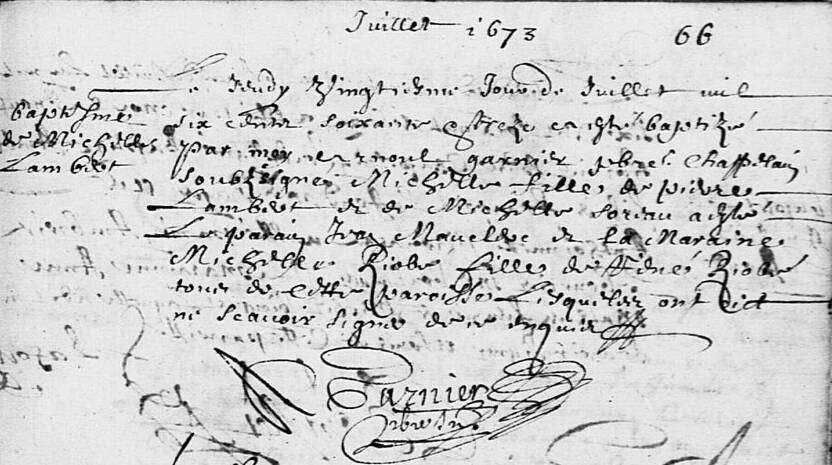 Juillet 1673
66
Le Jeudy Vingtiesme Jour de Juillet mil
baptesme
de Michelle
Lambert
six cents soixante et treze a esté baptizé
par moy garnier pbre Chappelain
soubzsigné Michelle fille de pierre
Lambert et de Michelle Soreau a esté
Le parain Jean et la Maraine
Michelle Riobé fille de Riobé
tous de cette paroisse Lesquelz ont dict
ne scavoir signer de ce enquis
Garnier
pbre